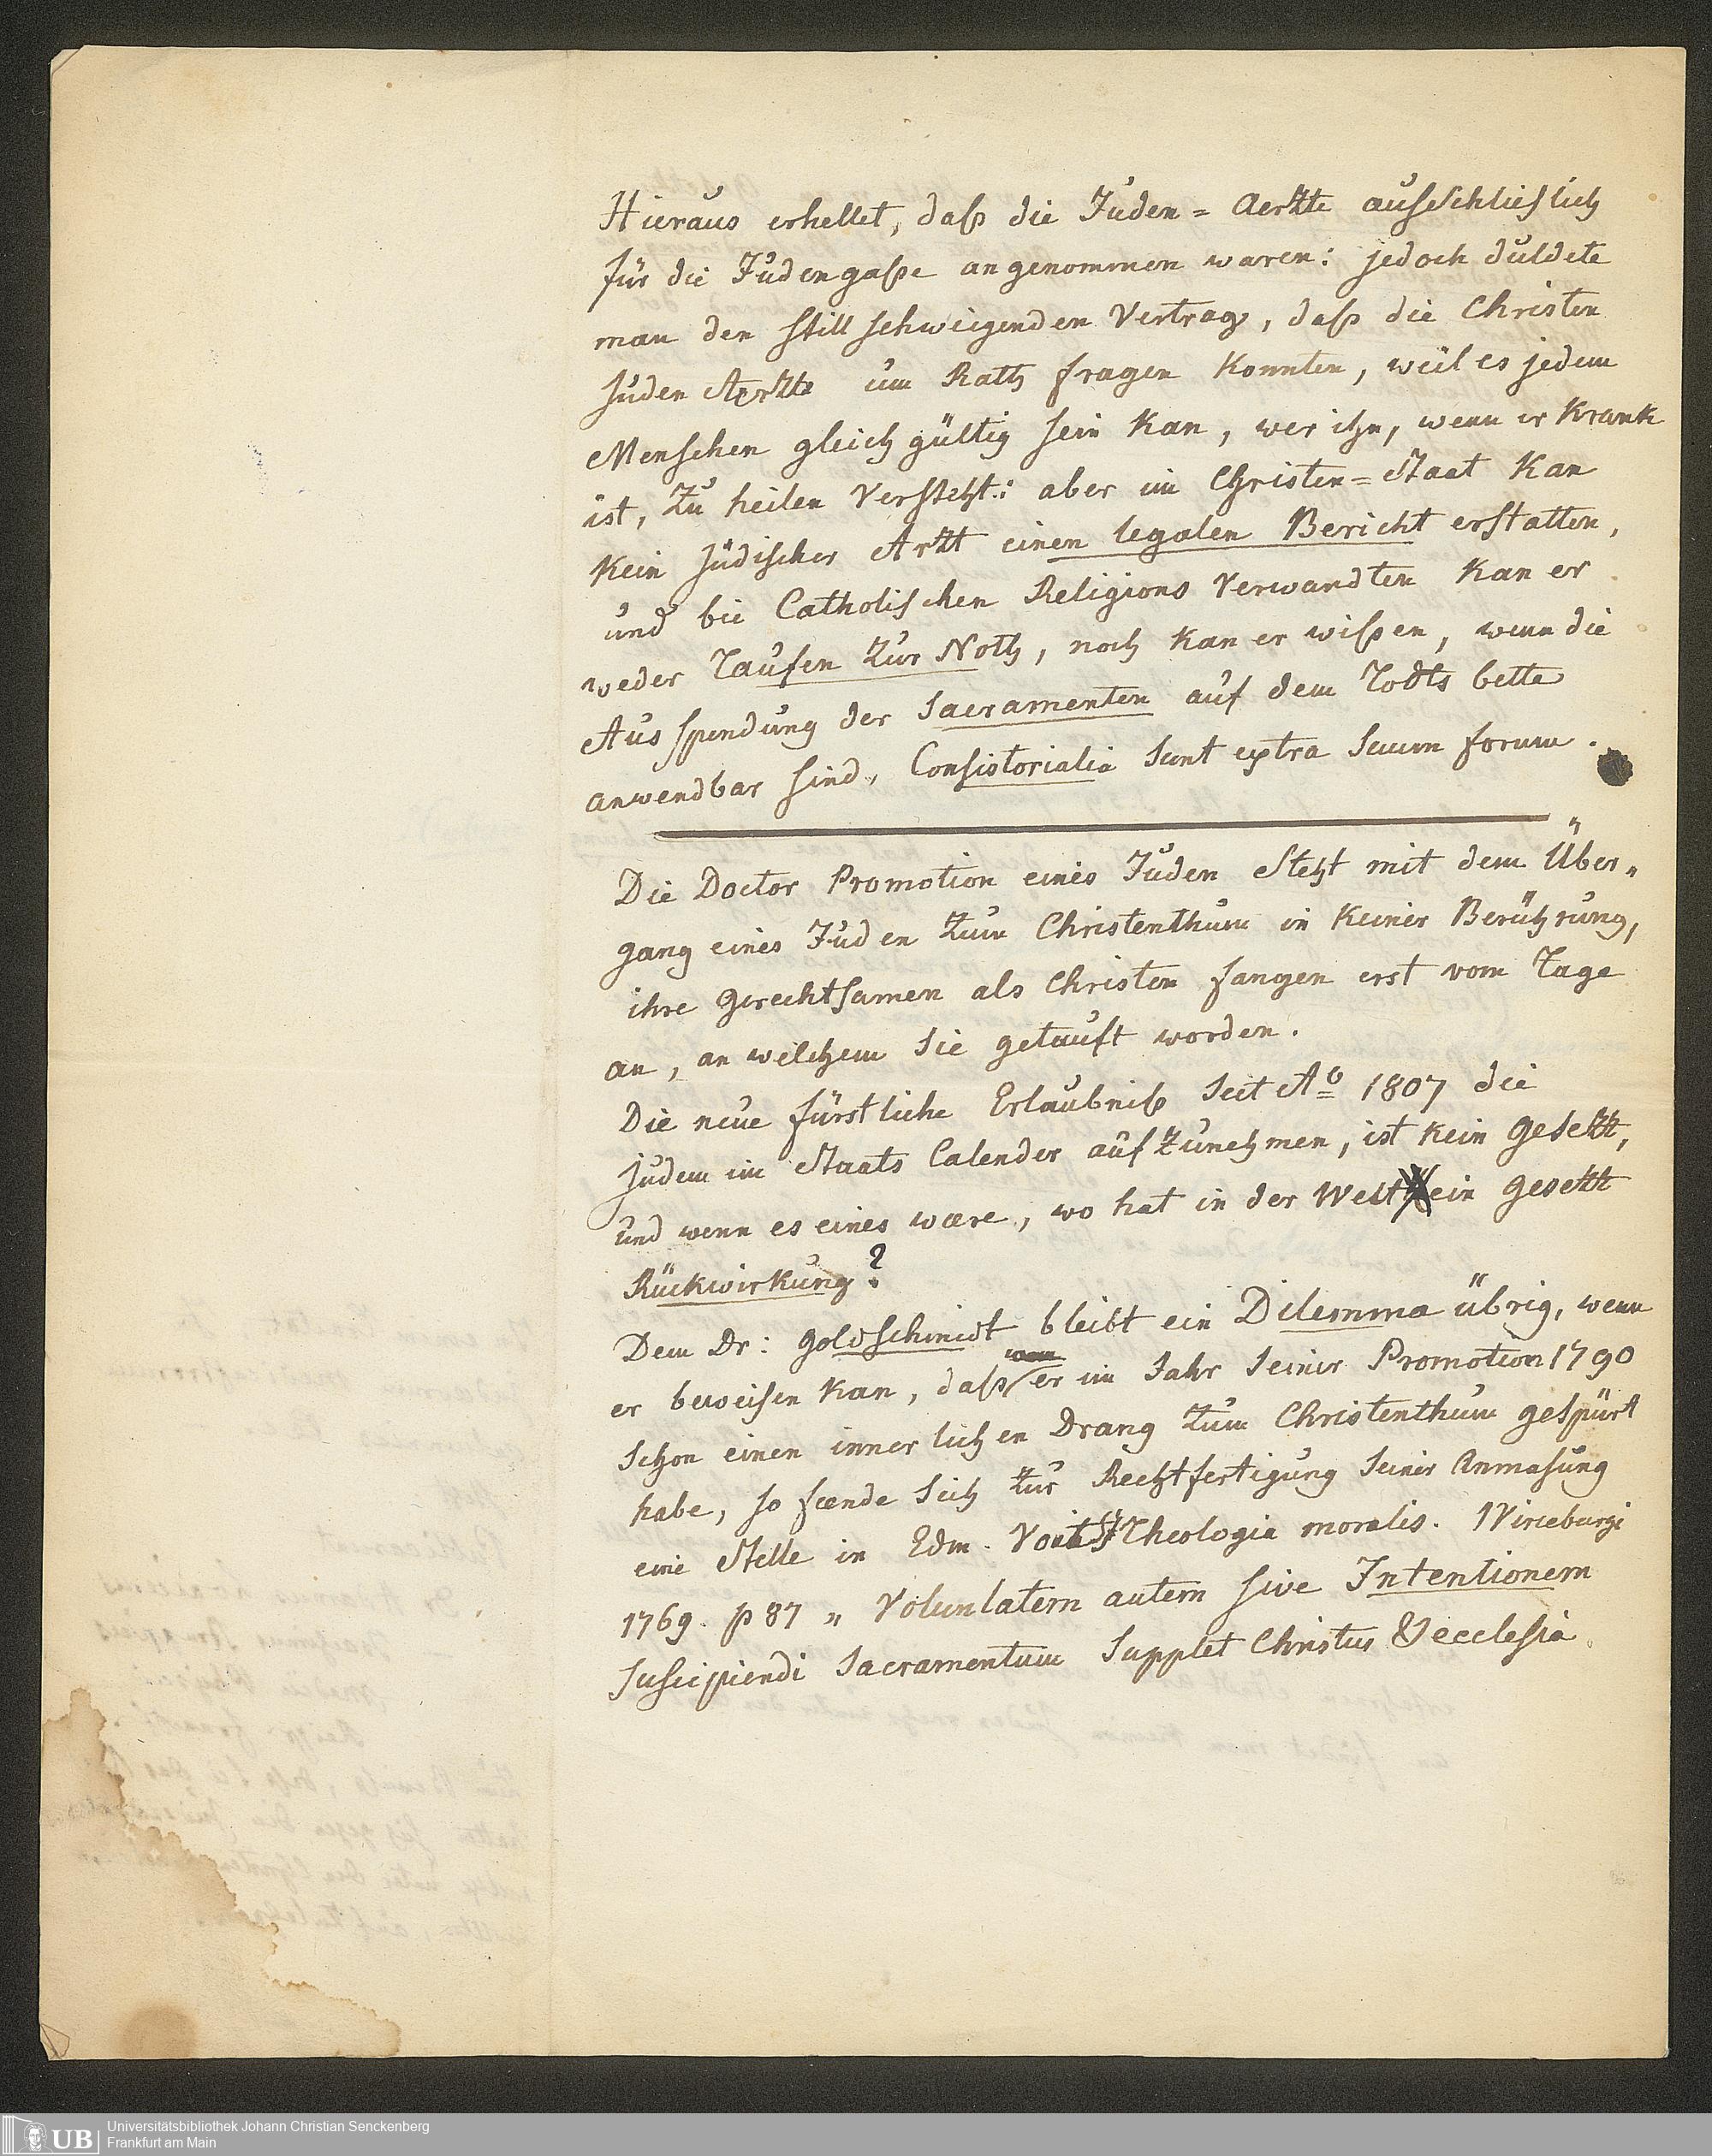 Hieraus erhellet, daß die Juden = Aerzte ausschlieslich
für die Judengaße angenommen waren: jedoch duldete
man den stillschweigenden Vertrag, daß die Christen
Juden Aerzte um Rath fragen konnten, weil es jedem
Menschen gleichgültig sein kan, wer ihn, wenn er krank
ist, zu heilen versteht: aber im Christen = Staat kan
kein jüdischer Arzt einen legalen Bericht erstatten,
und bei Catholischen Religions Verwandten kan er
weder Taufen zur Noth, noch kan er wißen, wenn die
Ausspendung der Sacramenten auf dem Todts bette
anwendbar sind, Consistorialia sunt extra suum forum.
Die Doctor Promotion eines Juden steht mit dem Über„
gang eines Juden zum Christenthum in keiner Berührung,
ihre Gerechtsamen als Christen fangen erst vom Tage
an, an welchem sie getauft worden.
Die neue fürstliche Erlaubniß seit Ao 1807 die
Juden im Staats Calender aufzunehmen, ist kein Gesetz,
und wenn es eines wäre, wo hat in der Welt ein Gesetz
Rückwirkung?
Dem Dr: Goldschmidt bleibt ein Dilemma übrig, wenn
er beweisen kan, daß er im Jahr seiner Promotion 1790
schon einen innerlichen Drang zum Christenthum gespürt
habe, so fænde sich zur Rechtfertigung seiner Anmasung
eine Stelle in Edm. Voit Theologia moralis. Wirceburgi
1769. p 87 „ Voluntatem autem sive Intentionem
suscipiendi Sacramentum supplet Christus & ecclesia
Universitätsbibliothek Johann Christian Senckenberg
Frankfurt am Main
UB